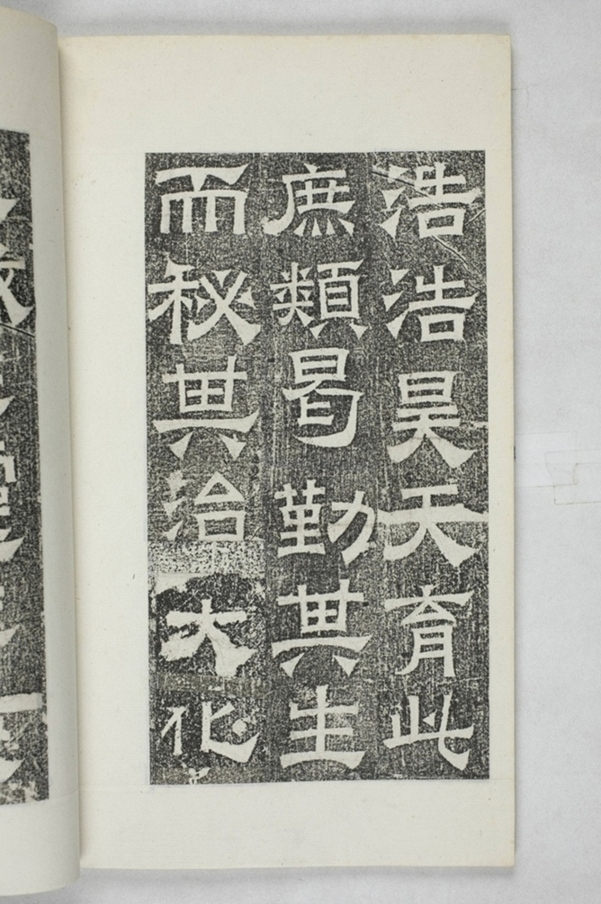 浩浩昊天育此
庶類曷勤其生
而秘其治大化